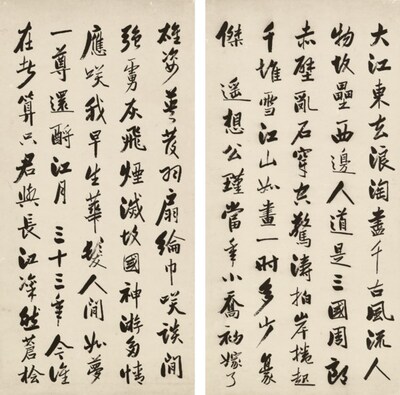 大江東去浪淘盡千古風流人
物故壘西邊人道是三國周郎
赤壁亂石穿空驚濤拍岸捲起
千堆雪江山如畫一時多少豪
傑 遙想公瑾當年小喬初嫁了
雄姿英發羽扇綸巾咲談間
強虜灰飛煙滅故國神游多情
應咲我早生華髮人間如夢
一尊還酹江月 三十三年 今誰
在者算只君與長江凜然蒼檜